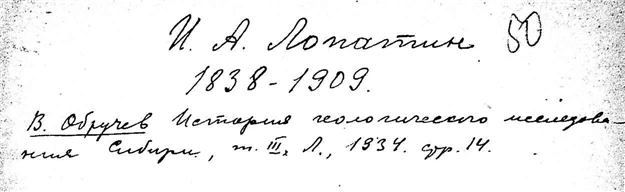 И. А. Лопатин 50
1838-1909.
В. Обручев История геологического исследова-
ния Сибири, т. III, Л., 1934. стр. 14.